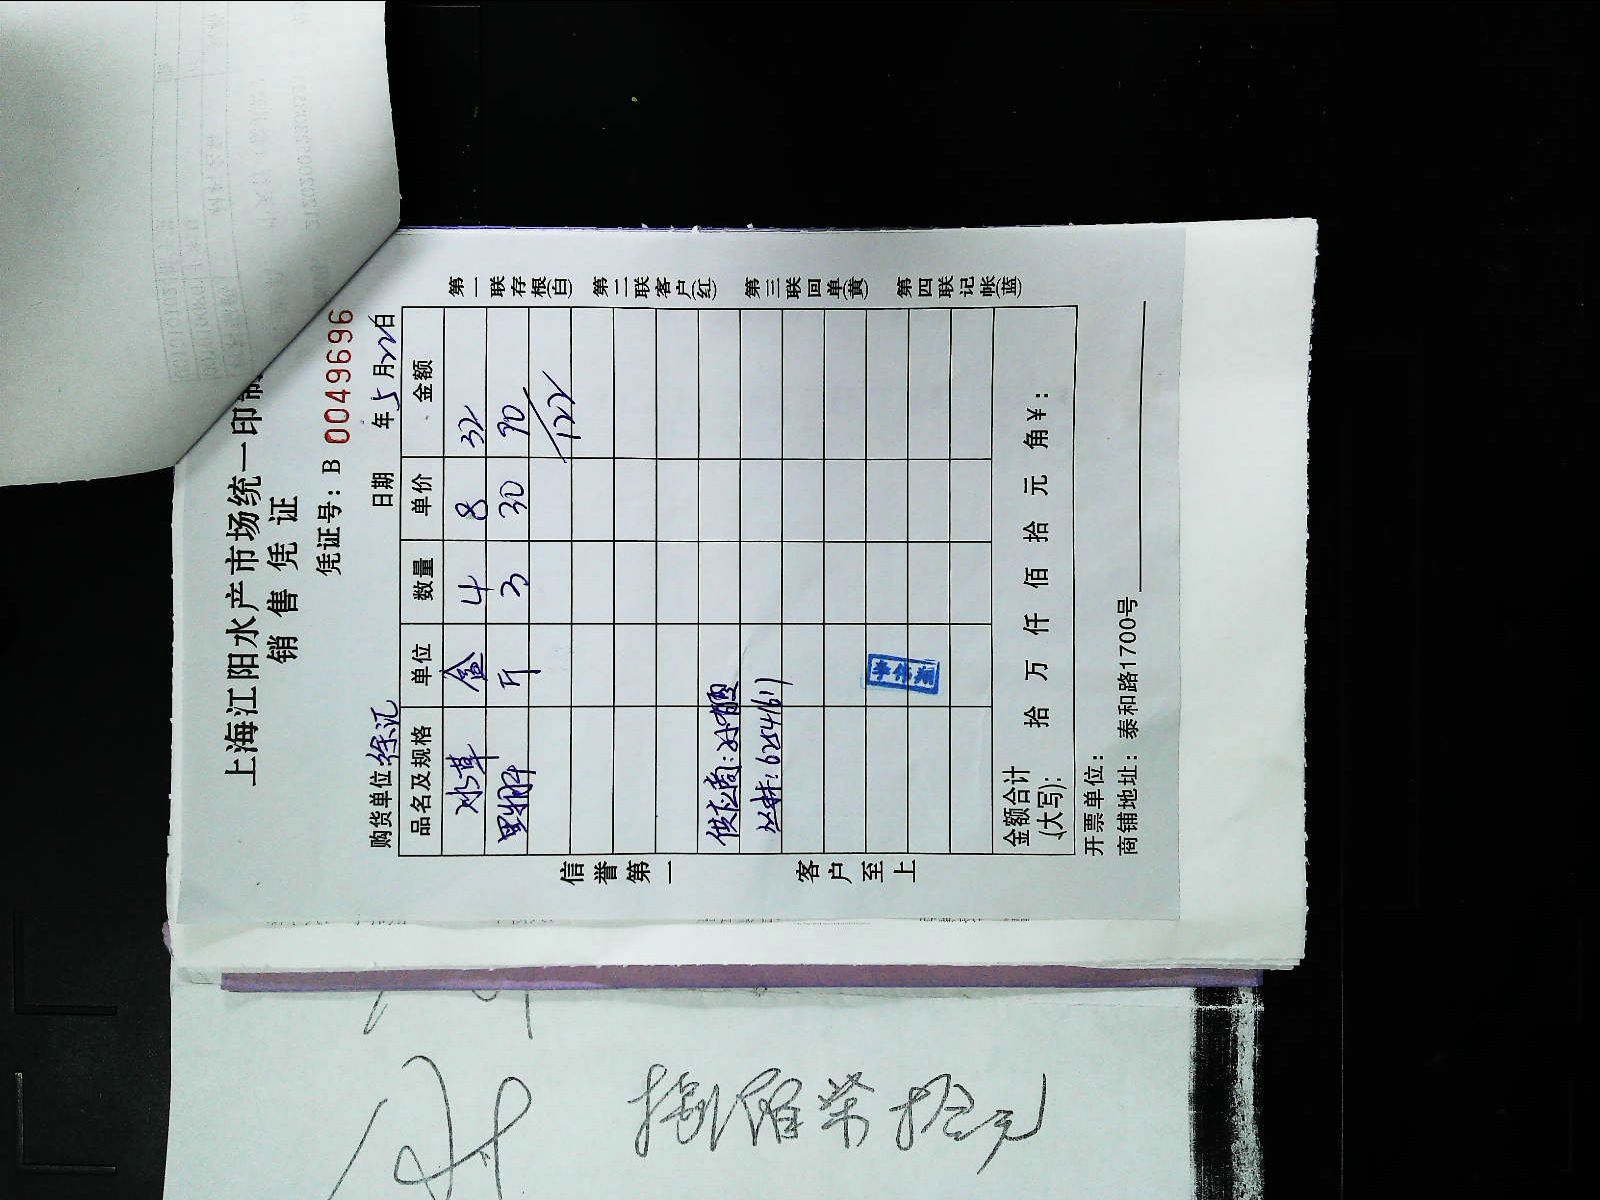 上海江阳水产市场统一印制
销售凭证
凭证号：B 0049696
购货单位：徐汇 日期 年5月22日
品名及规格 单位 数量 单价 金额
冰草 盒 4 8 32
斤 3 30 90
122
供应商：
62541611
李伟
金额合计
(大写)： 拾 万 仟 佰 拾 元 角 ¥：
开票单位：
商铺地址：泰和路1700号
信誉第一 客户至上
第一联存根(白) 第二联客户(红) 第三联回单(黄) 第四联记帐(蓝)